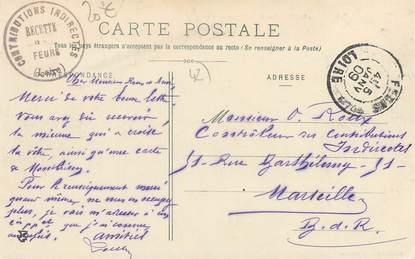 20 €
CONTRIBUTIONS INDIRECTES
RECETTE
FEURS
(LOIRE)
CARTE POSTALE
Tous les pays étrangers n'acceptent pas la correspondance au recto (Se renseigner à la Poste)
CORRESPONDANCE
ADRESSE
42
LOIRE
5
JANV
09
Cher Monsieur
Merci de votre bonne lettre
Vous avez dû recevoir
la mienne qui a croisé
la vôtre, ainsi qu'une carte
de Montbrison
Pour le renseignement merci
quand même, ne vous en occupez
plus, je vais m'adresser à un
que j'ai comme
amitiés
Monsieur O. Roux
Contrôleur des Contributions
Indirectes
51 - Rue Barthélemy - 51
Marseille
B.d.R.